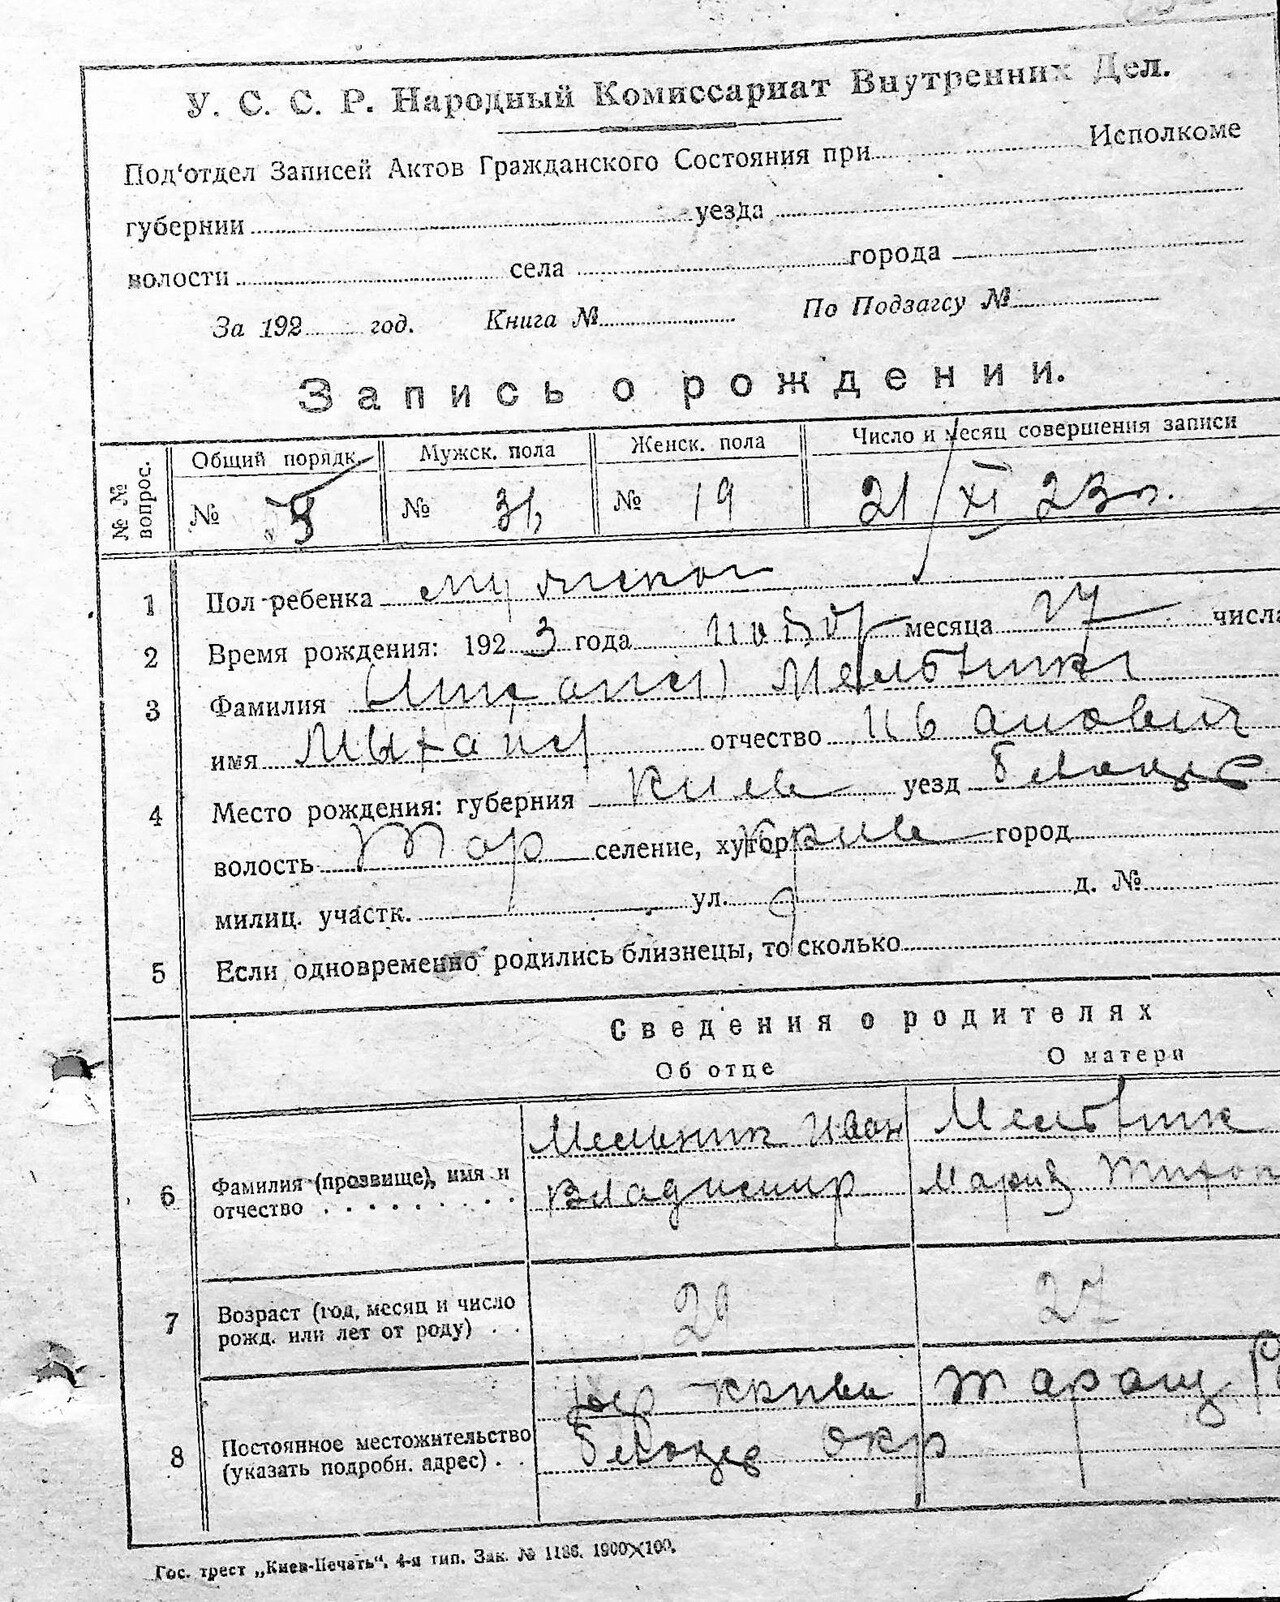 У. С. С. Р. Народный Комиссариат Внутренних Дел.
Под‘отдел Записей Актов Гражданского Состояния при Исполкоме
губернии уезда
волости села города
За 192 год. Книга № По Подзагсу №
Запись о рождении.
№ № вопрос. Общий порядк. Мужск. пола Женск. пола Число и месяц совершения записи
№ № 31 № 19 21/XI 23 г.
1 Пол ребенка мужской
2 Время рождения: 1923 года нояб месяца 17 числа
3 Фамилия Мельник
имя Михаил отчество Иванович
4 Место рождения: губерния Киев уезд Белоцер
волость Тар селение, хутор Крива город
милиц. участк. ул. д. №
5 Если одновременно родились близнецы, то сколько
Сведения о родителях
Об отце О матери
6 Фамилия (прозвище), имя и отчество Мельник Иван Владимир Мельник Мария Тихон
7 Возраст (год, месяц и число рожд. или лет от роду) 29 27
8 Постоянное местожительство (указать подробн. адрес) Крива Таращ
Белоцер окр
Гос. трест „Киев-Печать“. 4-я тип. Зак. № 1186. 1900×100.